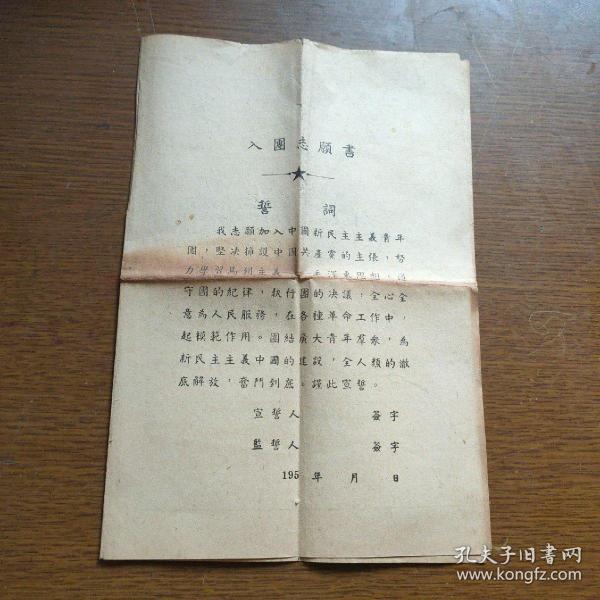 入團志願書
誓 詞
我志願加入中國新民主主義青年
團，堅决擁護中國共產黨的主張，努
力學習馬列主義 毛澤東思想，遵
守團的紀律，执行團的决議，全心全
意為人民服務，在各種革命工作中，
起模範作用。團結廣大青年羣衆，為
新民主主義中國的建設，全人類的澈
底解放，奮鬥到底。謹此宣誓。
宣誓人 簽字
監誓人 簽字
195 年 月 日
孔夫子旧書网
www.kongfz.com